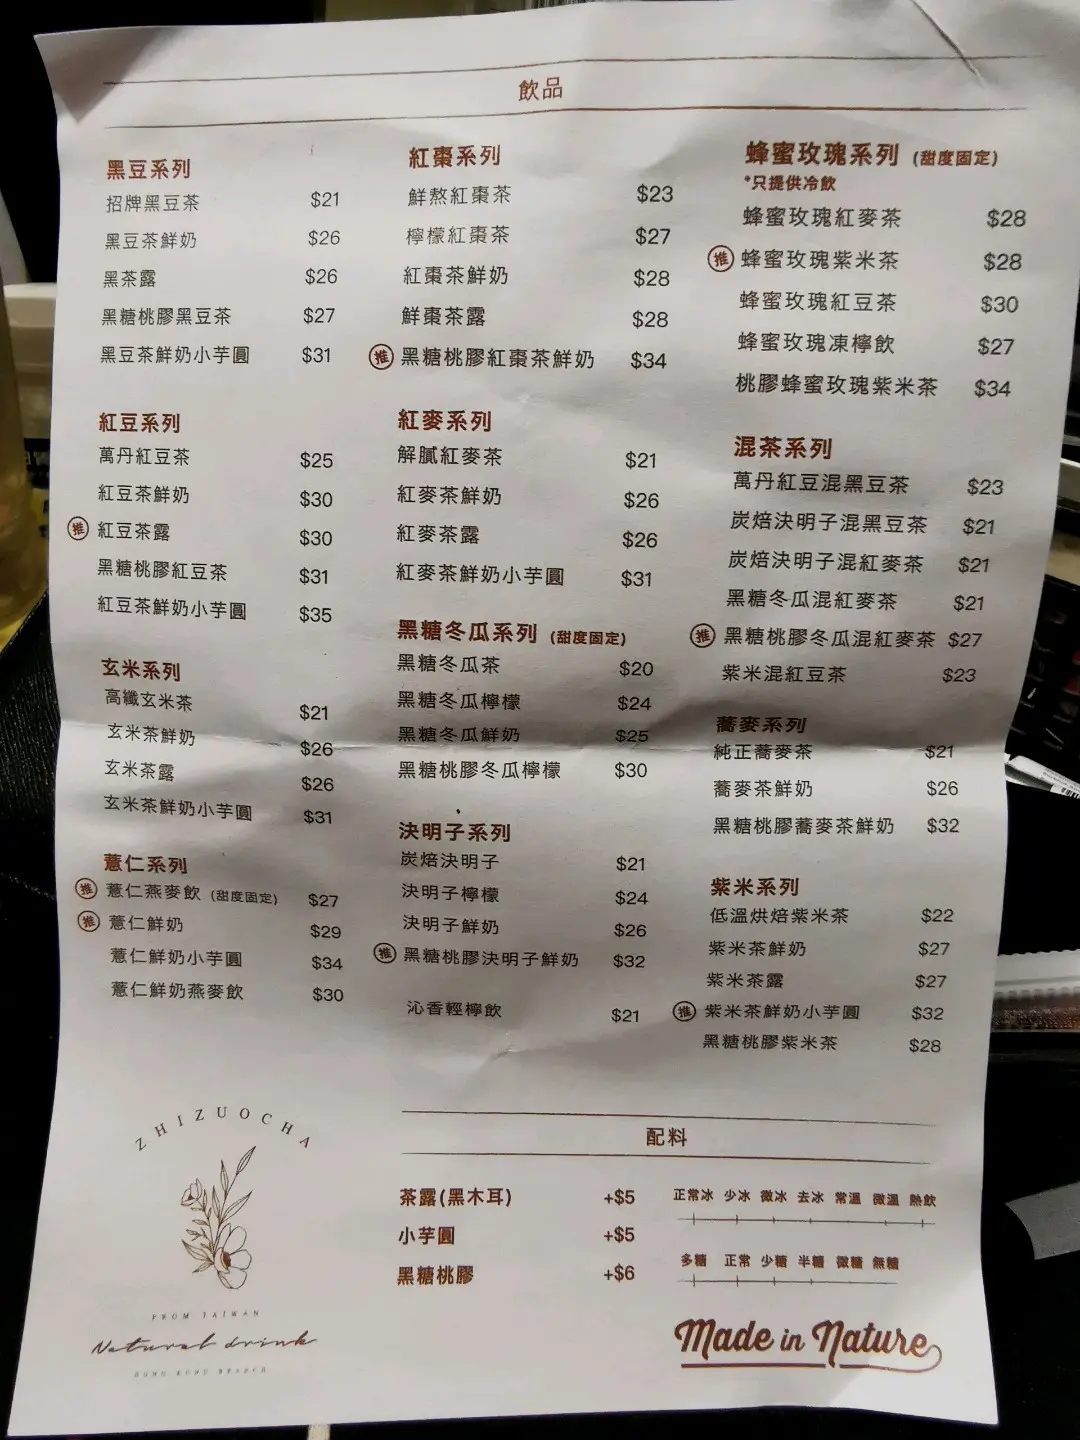 飲品
黑豆系列
招牌黑豆茶 $21
黑豆茶鮮奶 $26
黑茶露 $26
黑糖桃膠黑豆茶 $27
黑豆茶鮮奶小芋圓 $31
紅豆系列
萬丹紅豆茶 $25
紅豆茶鮮奶 $30
推 紅豆茶露 $30
黑糖桃膠紅豆茶 $31
紅豆茶鮮奶小芋圓 $35
玄米系列
高纖玄米茶 $21
玄米茶鮮奶 $26
玄米茶露 $26
玄米茶鮮奶小芋圓 $31
薏仁系列
推 薏仁燕麥飲 (甜度固定) $27
推 薏仁鮮奶 $29
薏仁鮮奶小芋圓 $34
薏仁鮮奶燕麥飲 $30
紅棗系列
鮮熬紅棗茶 $23
檸檬紅棗茶 $27
紅棗茶鮮奶 $28
鮮棗茶露 $28
推 黑糖桃膠紅棗茶鮮奶 $34
紅麥系列
解膩紅麥茶 $21
紅麥茶鮮奶 $26
紅麥茶露 $26
紅麥茶鮮奶小芋圓 $31
黑糖冬瓜系列 (甜度固定)
黑糖冬瓜茶 $20
黑糖冬瓜檸檬 $24
黑糖冬瓜鮮奶 $25
黑糖桃膠冬瓜檸檬 $30
決明子系列
炭焙決明子 $21
決明子檸檬 $24
決明子鮮奶 $26
推 黑糖桃膠決明子鮮奶 $32
沁香輕檸飲 $21
蜂蜜玫瑰系列 (甜度固定)
*只提供冷飲
蜂蜜玫瑰紅麥茶 $28
推 蜂蜜玫瑰紫米茶 $28
蜂蜜玫瑰紅豆茶 $30
蜂蜜玫瑰凍檸飲 $27
桃膠蜂蜜玫瑰紫米茶 $34
混茶系列
萬丹紅豆混黑豆茶 $23
炭焙決明子混黑豆茶 $21
炭焙決明子混紅麥茶 $21
黑糖冬瓜混紅麥茶 $21
推 黑糖桃膠冬瓜混紅麥茶 $27
紫米混紅豆茶 $23
蕎麥系列
純正蕎麥茶 $21
蕎麥茶鮮奶 $26
黑糖桃膠蕎麥茶鮮奶 $32
紫米系列
低溫烘焙紫米茶 $22
紫米茶鮮奶 $27
紫米茶露 $27
推 紫米茶鮮奶小芋圓 $32
黑糖桃膠紫米茶 $28
ZHIZUOCHA
FROM TAIWAN
Natural drink
HONG KONG BRANCH
配料
茶露(黑木耳) +$5
小芋圓 +$5
黑糖桃膠 +$6
正常冰 少冰 微冰 去冰 常溫 微溫 熱飲
多糖 正常 少糖 半糖 微糖 無糖
Made in Nature